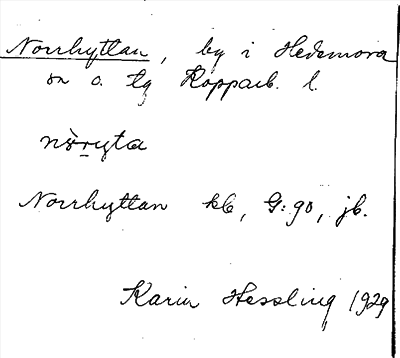 Norrhyttan, by i Hedemora
sn o. tg Kopparb. l.
nòryta
Norrhyttan kb, G:90, jb.
Karin Hessling 1929